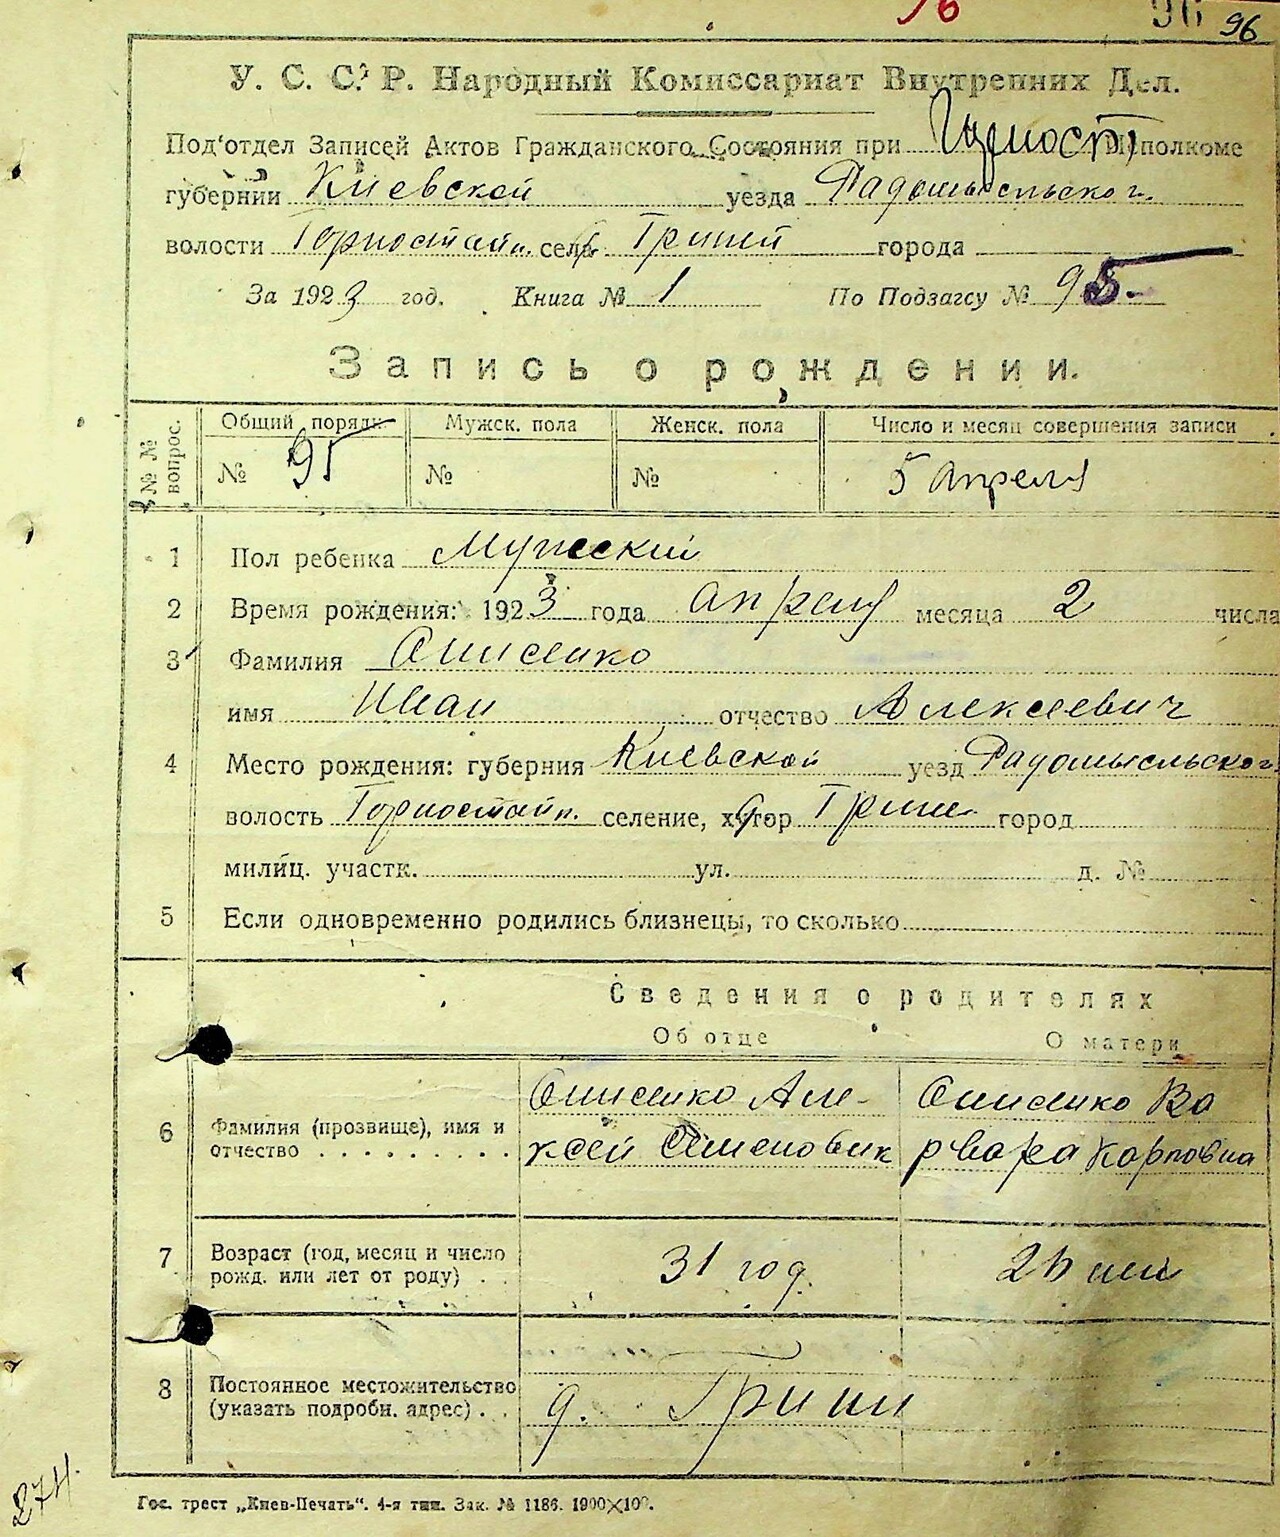 96
96
У. С. С. Р. Народный Комиссариат Внутренних Дел.
Под'отдел Записей Актов Гражданского Состояния при Исполкоме
губернии Киевской уезда Радомысльског.
волости Горностайп. села Гриней города
За 1923 год. Книга № 1 По Подзагсу № 95
Запись о рождении.
№№ вопрос.
Общий порядк. Мужск. пола Женск. пола Число и месяц совершения записи
№ 95 № № 5 Апреля
1 Пол ребенка Мужский
2 Время рождения: 1923 года апреля месяца 2 числа
3 Фамилия Онисенко
имя Иван отчество Алексеевич
4 Место рождения: губерния Киевской уезд Радомысльског
волость Горностайп. селение, хутор Грини город
милиц. участк. ул. д. №
5 Если одновременно родились близнецы, то сколько
Сведения о родителях
Об отце О матери
6 Фамилия (прозвище), имя и отчество
Онисенко Але-
ксей Семенович
Онисенко Ва
рвара Карповна
7 Возраст (год, месяц и число рожд. или лет от роду)
31 год. 26 лет
8 Постоянное местожительство (указать подробн. адрес)
д. Грини
274.
Гос. трест „Киев-Печать“. 4-я тип. Зак. № 1186. 1900×100.